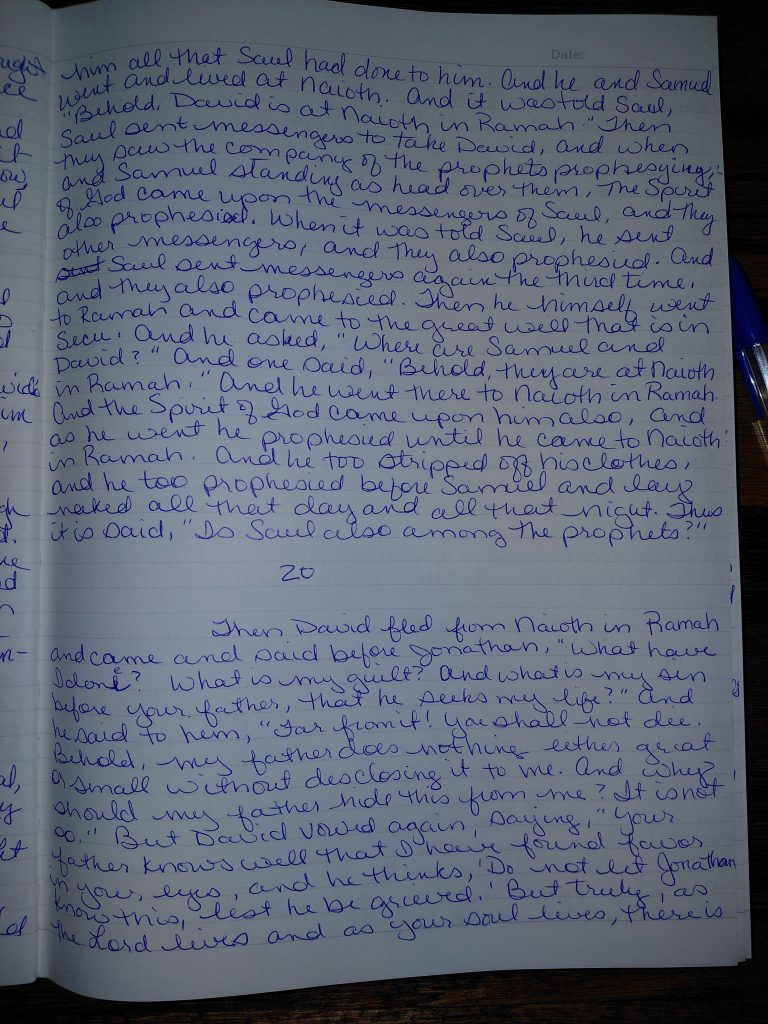 Date:
him all that Saul had done to him. And he and Samuel
went and lived at Naioth. And it was told Saul,
"Behold, David is at Naioth in Ramah." Then
Saul sent messengers to take David, and when
they saw the company of the prophets prophesying,
and Samuel standing as head over them, The Spirit
of God came upon the messengers of Saul, and they
also prophesied. When it was told Saul, he sent
other messengers, and they also prophesied. And
Saul sent messengers again the third time,
and they also prophesied. Then he himself went
to Ramah and came to the great well that is in
Secu. And he asked, "Where are Samuel and
David?" And one said, "Behold, they are at Naioth
in Ramah." And he went there to Naioth in Ramah
And the Spirit of God came upon him also, and
as he went he prophesied until he came to Naioth
in Ramah. And he too stripped off his clothes,
and he too prophesied before Samuel and lay
naked all that day and all that night. Thus
it is said, "Is Saul also among the prophets?"
20
Then David fled from Naioth in Ramah
and came and said before Jonathan, "What have
I done? What is my guilt? And what is my sin
before your father, that he seeks my life?" And
he said to him, "Far from it! You shall not die.
Behold, my father does nothing either great
or small without disclosing it to me. And why
should my father hide this from me? It is not
so." But David vowed again, saying, "Your
father knows well that I have found favor
in your eyes, and he thinks, 'Do not let Jonathan
know this, lest he be grieved.' But truly, as
the Lord lives and as your soul lives, there is